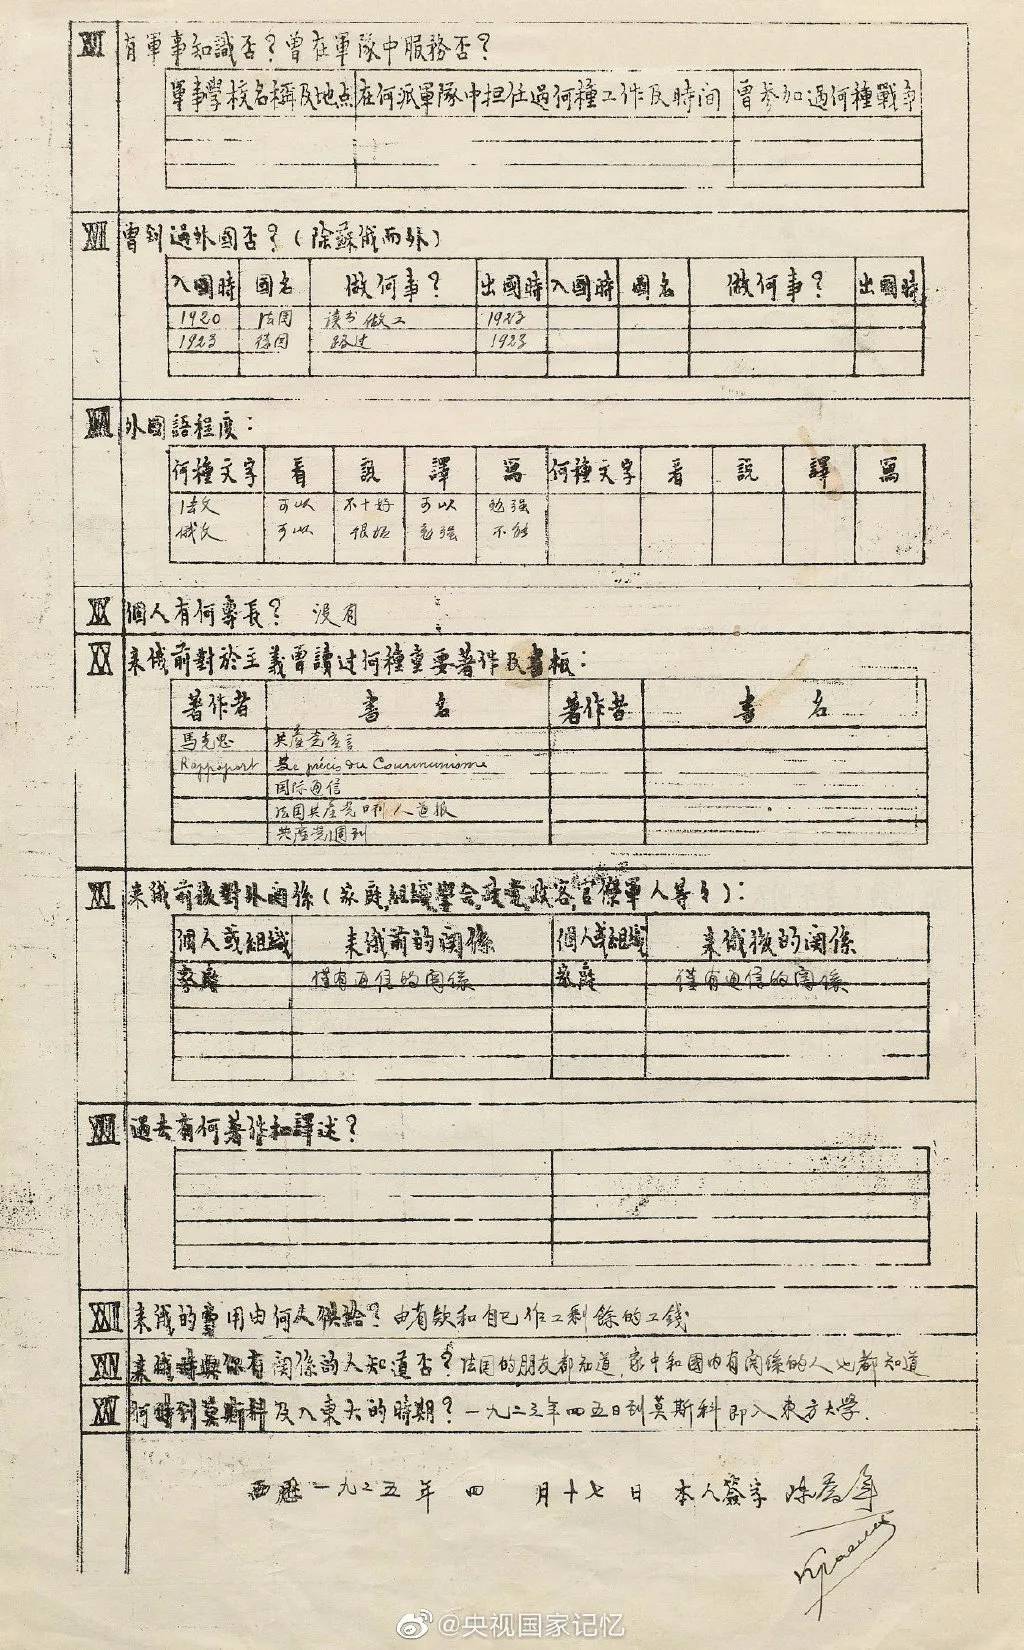 有軍事知識否？曾在軍隊中服務否？
軍事學校名稱及地点 在何派軍隊中担任過何種工作及時间 曾参加過何種戰
曾到過外國否？（除蘇俄而外）
入國時 國名 做何事？ 出國時 入國時 國名 做何事？ 出國時
1920 法国 读书做工 1923
1923 德国 路过 1923
外國語程度：
何種文字 看 説 譯 寫 何種文字 看 説 譯 寫
法文 可以 不十好 可以 勉强
俄文 可以 很坏 勉强 不能
XIX 個人有何專長？ 没有
XX 来俄前對於主義曾讀过何種重要著作及書板：
著作者 書名 著作者 書名
馬克思 共產党宣言
Rappoport précis du Communisme
国际通信
法国共產党 人道报
共產党週刊
XXI 来俄前後對外関係（家庭,組織,學会,政黨,政客,官僚軍人等々）：
個人或組織 来俄前的関係 個人或組織 来俄後的関係
家庭 僅有通信的関係 家庭 僅有通信的関係
XXII 過去有何著作和譯述？
XXIII 来俄的費用由何人供給？ 由 自己作工剩餘的工錢
XXIV 来俄時與你有関係的人知道否？法国的朋友都知道,家中和國内有関係的人也都知道
XXV 何時到莫斯科及入東大的時期？一九二三年四五日到莫斯科即入東方大学.
西歷一九二五年 四 月十七日 本人簽字 陈乔年
@央视国家记忆